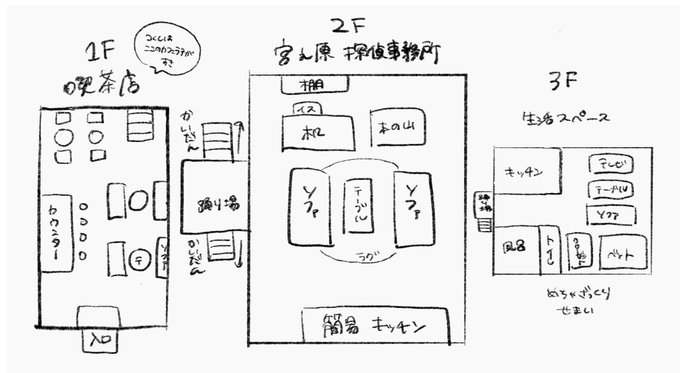 1F
喫茶店
つくしは
ここのカフェラテが
すき
カウンター
テ
入口
かいだん
踊り場
かいだん
2F
宮ノ原 探偵事務所
棚
イス
机
本の山
ソファ
テーブル
ソファ
ラグ
簡易 キッチン
3F
生活スペース
キッチン
テレビ
テーブル
ソファ
風呂
トイレ
ベット
めちゃざっくり
せまい